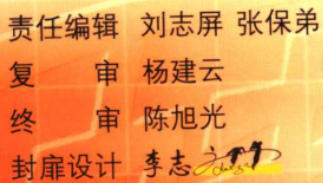 责任编辑 刘志屏 张保弟
复 审 杨建云
终 审 陈旭光
封扉设计 李志